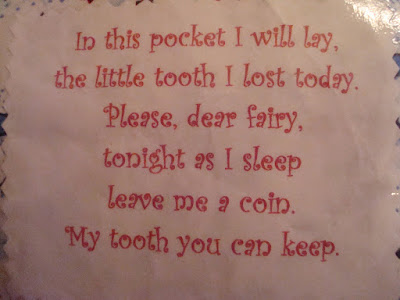 In this pocket I will lay,
the little tooth I lost today.
Please, dear fairy,
tonight as I sleep
leave me a coin.
My tooth you can keep.